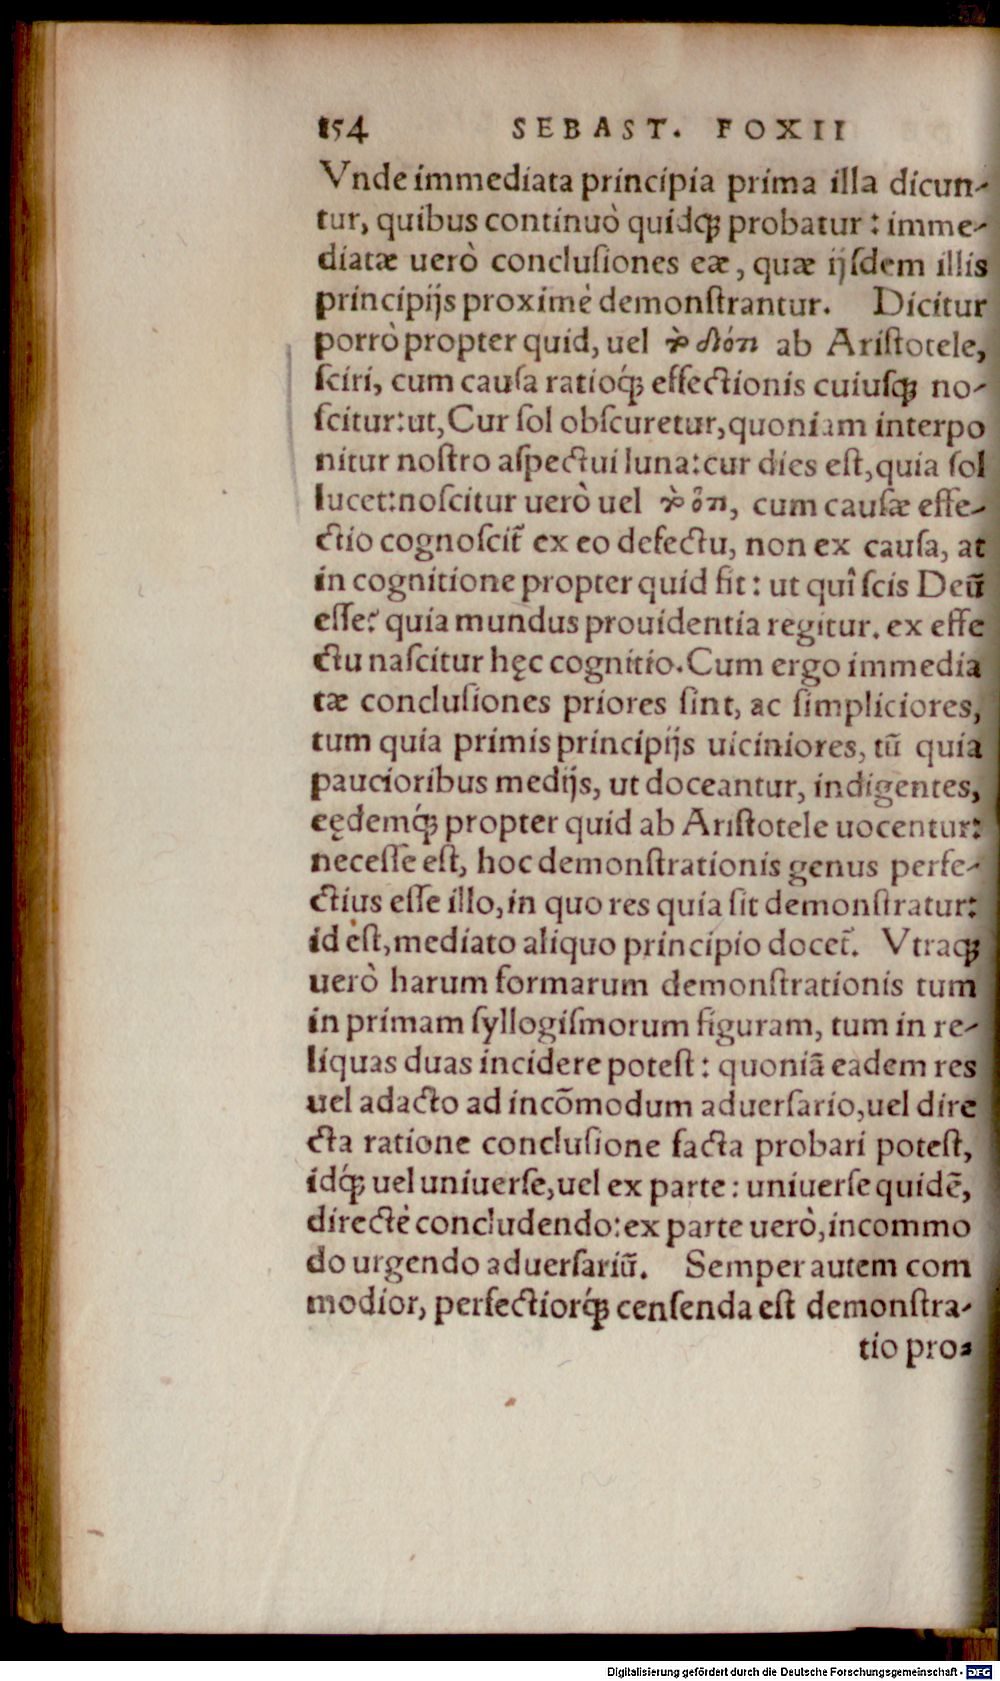 154 SEBAST. FOXII
Vnde immediata principia prima illa dicun-
tur, quibus continuò quidq́; probatur: imme-
diatæ uerò conclusiones eæ, quæ ijsdem illis
principijs proximè demonstrantur. Dicitur
porrò propter quid, uel τὸ διότι ab Aristotele,
sciri, cum causa ratioq́; effectionis cuiusq; no-
scitur: ut, Cur sol obscuretur, quoniam interpo
nitur nostro aspectui luna: cur dies est, quia sol
lucet: noscitur uerò uel τὸ ὅτι, cum causæ effe-
ctio cognoscit᷑ ex eo defectu, non ex causa, at
in cognitione propter quid fit: ut quî scis Deũ
esse? quia mundus prouidentia regitur. ex effe
ctu nascitur hęc cognitio. Cum ergo immedia
tæ conclusiones priores sint, ac simpliciores,
tum quia primis principijs uiciniores, tũ quia
paucioribus medijs, ut doceantur, indigentes,
eędemq́; propter quid ab Aristotele uocentur:
necesse est, hoc demonstrationis genus perfe-
ctius esse illo, in quo res quia sit demonstratur:
id est, mediato aliquo principio docet᷑. Vtraq;
uerò harum formarum demonstrationis tum
in primam syllogismorum figuram, tum in re-
liquas duas incidere potest: quoniã eadem res
uel adacto ad incõmodum aduersario, uel dire
cta ratione conclusione facta probari potest,
idq́; uel uniuerse, uel ex parte: uniuerse quidẽ,
directè concludendo: ex parte uerò, incommo
do urgendo aduersariũ. Semper autem com
modior, perfectiorq́; censenda est demonstra-
tio pro-
Digitalisierung gefördert durch die Deutsche Forschungsgemeinschaft - DFG